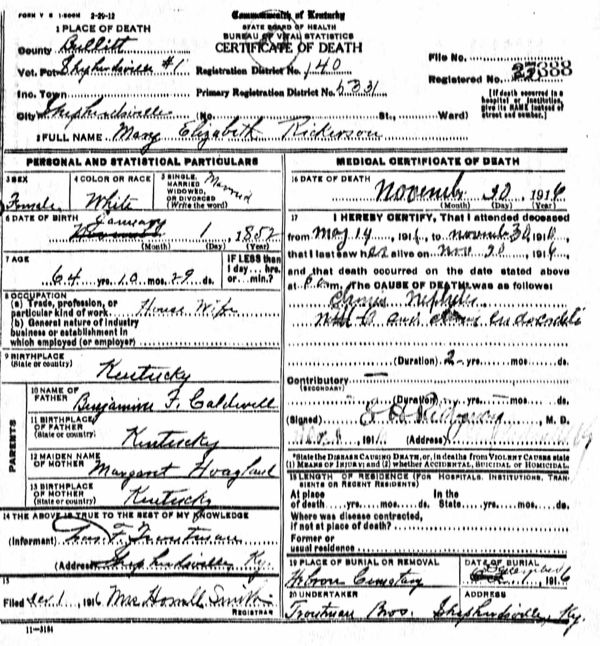 FORM V S 1-500M 2-29-12
Commonwealth of Kentucky
STATE BOARD OF HEALTH
BUREAU OF VITAL STATISTICS
CERTIFICATE OF DEATH
1 PLACE OF DEATH
County Bullitt
Vot. Pct. Shepherdsville #1
Inc. Town
City Shepherdsville (No. St., Ward)
Registration District No. 140
Primary Registration District No. 5331
File No.
Registered No. 27388
[If death occurred in a hospital or institution, give its NAME instead of street and number.]
2 FULL NAME Mary Elizabeth Rickerson
PERSONAL AND STATISTICAL PARTICULARS
3 SEX
Female
4 COLOR OR RACE
White
5 SINGLE, MARRIED WIDOWED, OR DIVORCED (Write the word)
Married
6 DATE OF BIRTH
January 1, 1852
(Month) (Day) (Year)
7 AGE
64 yrs. 10 mos. 29 ds.
IF LESS than 1 day... hrs. or... min.?
8 OCCUPATION
(a) Trade, profession, or particular kind of work House Wife
(b) General nature of industry business or establishment in which employed (or employer)
9 BIRTHPLACE
(State or country)
Kentucky
PARENTS
10 NAME OF FATHER
Benjamine F. Caldwell
11 BIRTHPLACE OF FATHER
(State or country)
Kentucky
12 MAIDEN NAME OF MOTHER
Margaret Hoagland
13 BIRTHPLACE OF MOTHER
(State or country)
Kentucky
14 THE ABOVE IS TRUE TO THE BEST OF MY KNOWLEDGE
(Informant) F. Troutman
(Address) Shepherdsville Ky.
15
Filed Dec 1, 1916 Mrs Howell Smith
REGISTRAR
11-3184
MEDICAL CERTIFICATE OF DEATH
16 DATE OF DEATH
November 30, 1916
(Month) (Day) (Year)
17 I HEREBY CERTIFY, That I attended deceased
from May 14, 1916, to November 30, 1916,
that I last saw her alive on Nov 30, 1916,
and that death occurred on the date stated above
at m. The CAUSE OF DEATH was as follows:
(Duration) 2 yrs. mos. ds.
Contributory
(SECONDARY)
(Duration) yrs. mos. ds.
(Signed) , M. D.
, 191 (Address)
*State the DISEASE CAUSING DEATH, or, in deaths from VIOLENT CAUSES state (1) MEANS OF INJURY; and (2) whether ACCIDENTAL, SUICIDAL or HOMICIDAL.
18 LENGTH OF RESIDENCE (FOR HOSPITALS, INSTITUTIONS, TRANSIENTS OR RECENT RESIDENTS)
At place of death yrs. mos. ds. In the State yrs. mos. ds.
Where was disease contracted, if not at place of death?
Former or usual residence
19 PLACE OF BURIAL OR REMOVAL
Hebron Cemetary
DATE OF BURIAL
December 1, 1916
20 UNDERTAKER
Troutman Bros.
ADDRESS
Shepherdsville, Ky.